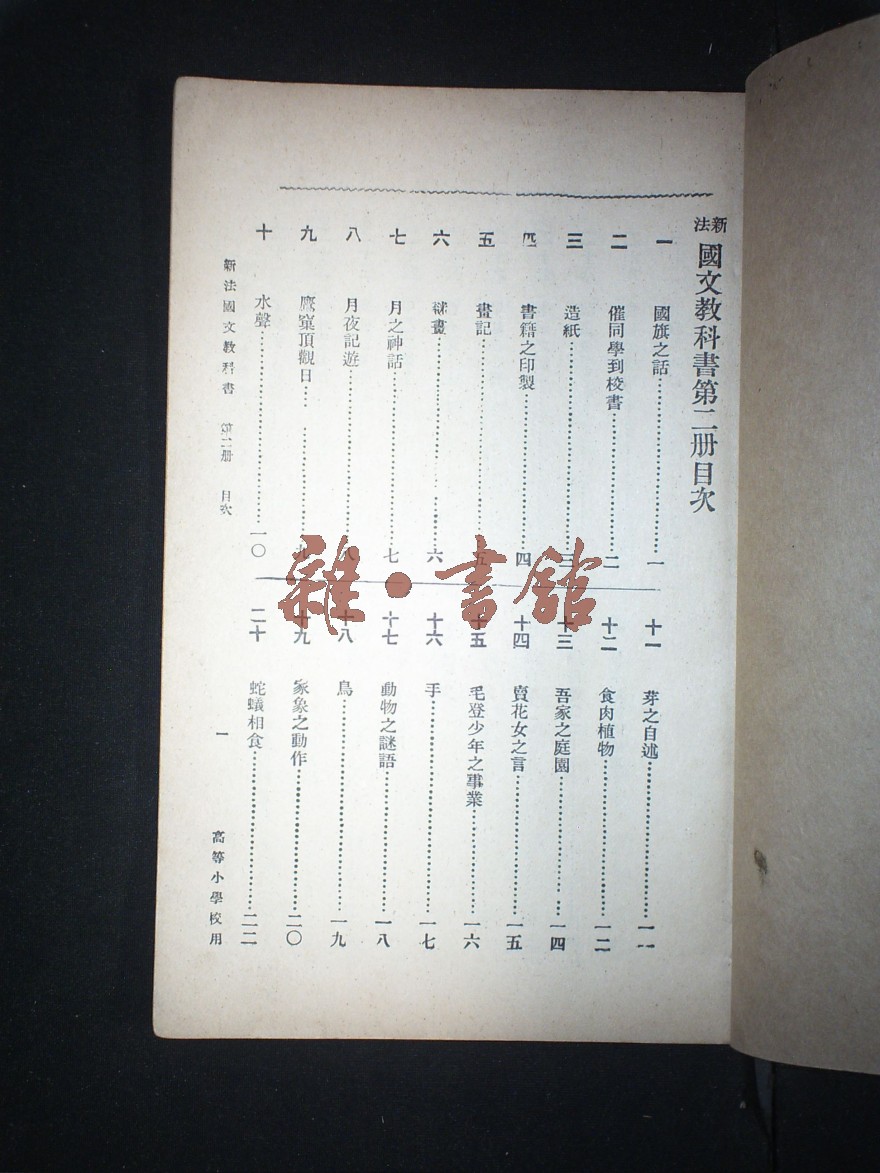 新法國文教科書第二册目次
一 國旗之話 一
二 催同學到校書 二
三 造紙 三
四 書籍之印製 四
五 畫記 五
六 畫 六
七 月之神話 七
八 月夜記遊 八
九 鷹窠頂觀日 九
十 水聲 一〇
十一 芽之自述 一一
十二 食肉植物 一二
十三 吾家之庭園 一四
十四 賣花女之言 一五
十五 毛登少年之事業 一六
十六 手 一七
十七 動物之謎語 一八
十八 鳥 一九
十九 家象之動作 二〇
二十 蛇蟻相食 二二
新法國文教科書 第二册 目次
一
高等小學校用
雜·書館